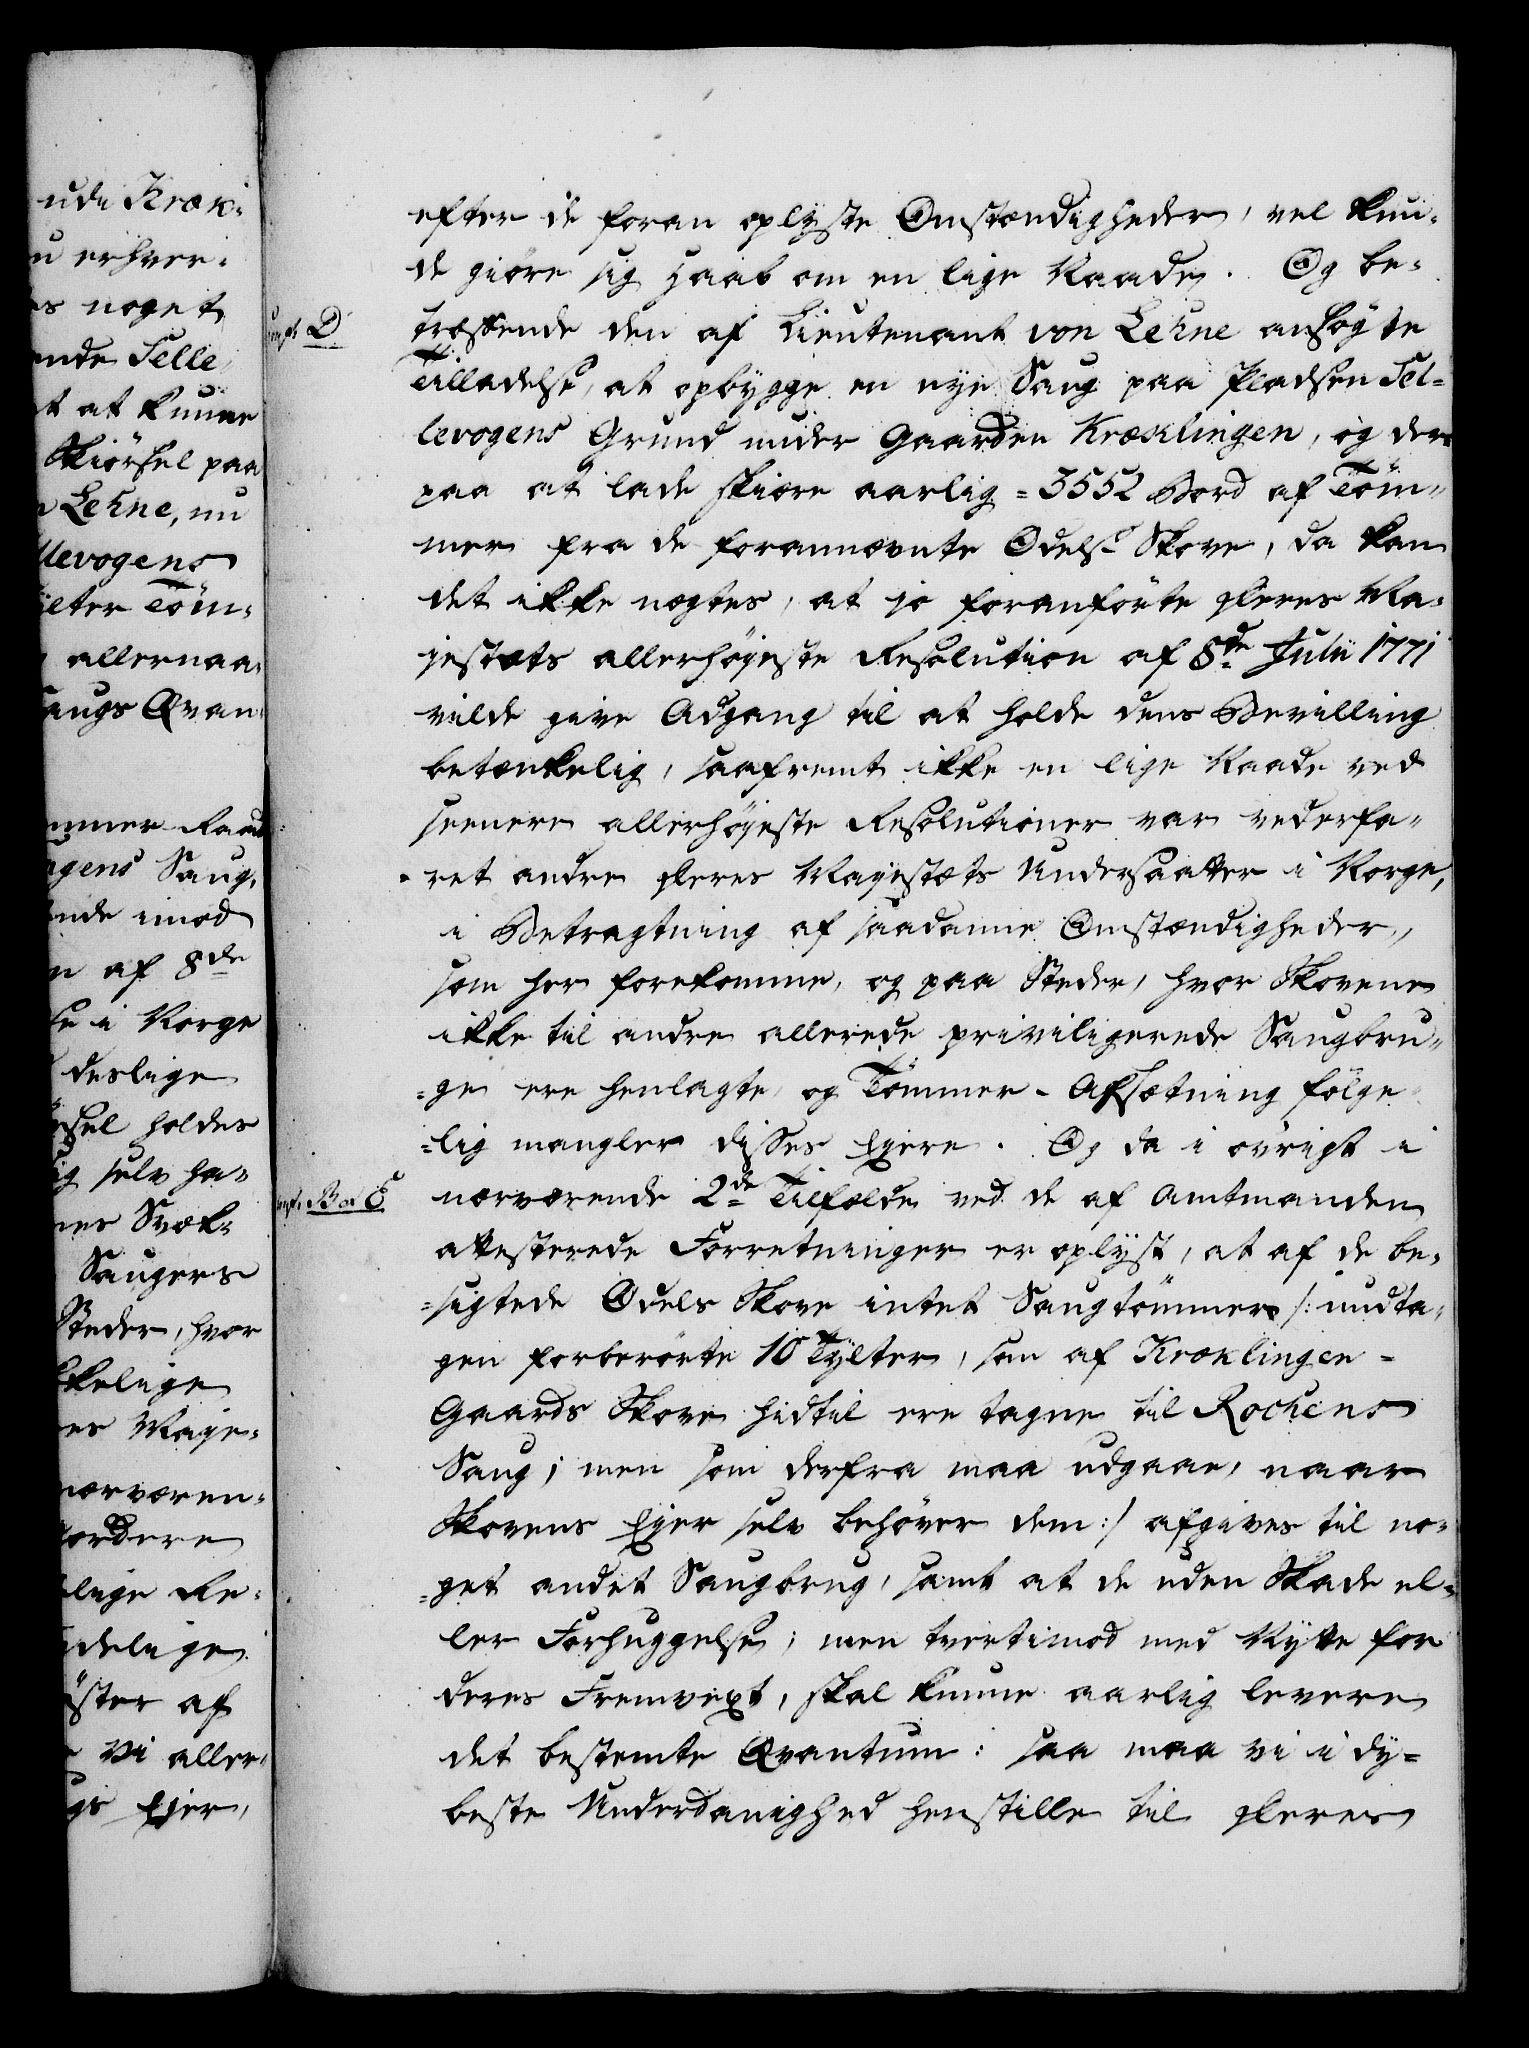 udi Kræk-
u erhver-
es noget
ende Telle
t at kunne
Skiörsel paa
n Lehne, nu
llevogens
ylter Töm-
allernaa-
augs Qvan-
ammer-Raad
gens Saug,
ende imod
n af 8de
se i Norge
deslige
rsel holdes
ig selv ha-
nes Svæk-
Saugers
Steder, hvor
kkelige
es Maje-
nærværen-
fordere
lige Re-
delige
ster af
Vi aller-
gs Ejer,
efter de foran oplyste Omstændigheder, vel kun-
de giöre sig Haab om en lige Naade. Og be-
D
træffende den af Lieutenant von Lehne ansögte
Tilladelse, at opbygge en nye Saug paa Pladsen Tel-
levogens Grund under Gaarden Kræklingen, og der-
paa at lade skiære aarlig = 3552 Bord af Töm-
mer fra de forannævnte Odels Skove, da kan
det ikke nægtes, at jo foranförte Deres Ma-
jestæts allerhöjeste Resolution af 8de Julii 1771
vilde give Adgang til at holde dens Bevilling
betænkelig, saafremt ikke en lige Naade ved
seenere allerhöjeste Resolutioner var vederfa-
ret andre Deres Majestæts Undersaatter i Norge,
i Betragtning af saadanne Omstændigheder,
som her forekomme, og paa Steder, hvor Skovene
ikke til andre allerede priviligerede Saugbru-
=ge ere henlagte, og Tömmer-Afsætning fölge
=lig mangler disses Ejere. Og da i övrigt i
B og E
nærværende 2de Tilfælde ved de af Amtmanden
attesterede Forretninger er oplyst, at af de be-
=sigtede Odels Skove intet Saugtömmer /: undta-
gen forberörte 10 Tylter, som af Kræklingen-
Gaards Skove hidtil ere tagne til Rochens
Saug; men som derfra maa udgaae, naar
Skovens Ejer selv behöver dem :/ afgives til no-
=get andet Saugbrug, samt at de uden Skade el-
ler Forhuggelse; men tvertimod med Nytte for
deres Fremvext, skal kunne aarlig levere
det bestemte Qvantum: saa maa vi i dy-
beste Underdanighed henstille til Deres